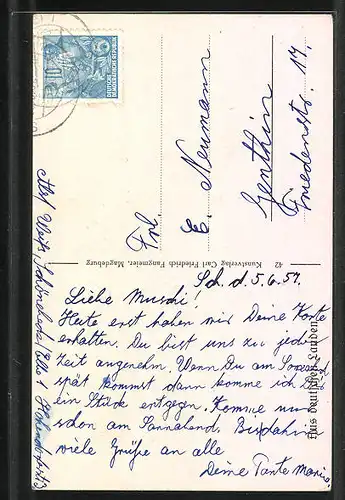 Sch. d. 5.6.57.
Liebe Muschi!
Heute erst haben wir Deine Karte
erhalten. Du bist uns zu jeder
Zeit angenehm. Wenn Du am Sonnabend
spät kommst dann komme ich Dir
ein Stück entgegen. Komme nur
schon am Sonnabend. Bis dahin
viele Grüße an alle
Deine Tante
Frl.
E. Neumann
Genthin
Friedenstr. 17.
42 Kunstverlag Carl Friedrich Fangmeier, Magdeburg
Aus deutschen Landen
Schönebeck/Elbe
DEUTSCHE
DEMOKRATISCHE REPUBLIK
10